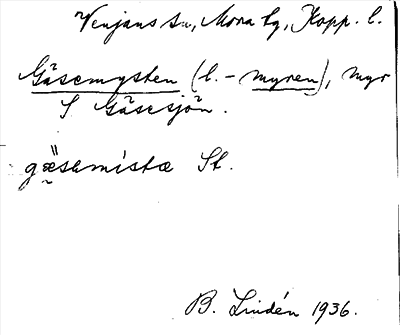 Venjans sn, Mora tg, Kopp. l.
Gåsemysten (l. - myren), myr
S Gåsesjön.
gæ̈sa místæ St.
B. Lindén 1936.